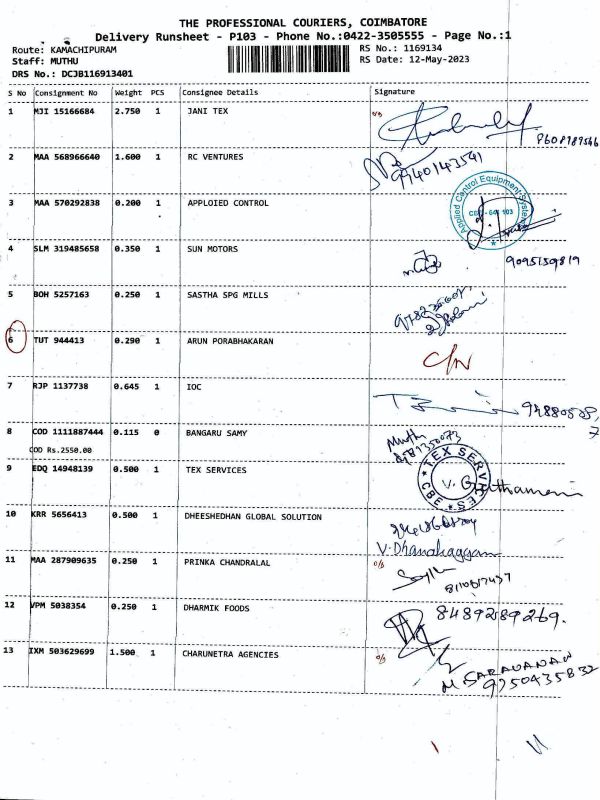 THE PROFESSIONAL COURIERS, COIMBATORE
Delivery Runsheet - P103 - Phone No.:0422-3505555 - Page No.:1
Route: KAMACHIPURAM RS No.: 1169134
Staff: MUTHU RS Date: 12-May-2023
DRS No.: DCJB116913401
S No Consignment No Weight PCS Consignee Details Signature
1 MJI 15166684 2.750 1 JANI TEX
2 MAA 568966640 1.600 1 RC VENTURES 9940143541
3 MAA 570292838 0.200 1 APPLOIED CONTROL Applied Control Equipment Systems
4 SLM 319485658 0.350 1 SUN MOTORS 9095159819
5 BOH 5257163 0.250 1 SASTHA SPG MILLS
6 TUT 944413 0.290 1 ARUN PORABHAKARAN C/N
7 RJP 1137738 0.645 1 IOC
8 COD 1111887444 0.115 0 BANGARU SAMY Muthu
COD Rs.2550.00
9 EDQ 14948139 0.500 1 TEX SERVICES TEX SERVICES CBE
10 KRR 5656413 0.500 1 DHEESHEDHAN GLOBAL SOLUTION
11 MAA 287909635 0.250 1 PRINKA CHANDRALAL
12 VPM 5038354 0.250 1 DHARMIK FOODS 8489289269.
13 IXM 503629699 1.500 1 CHARUNETRA AGENCIES
M SARAVANAN
9750435832